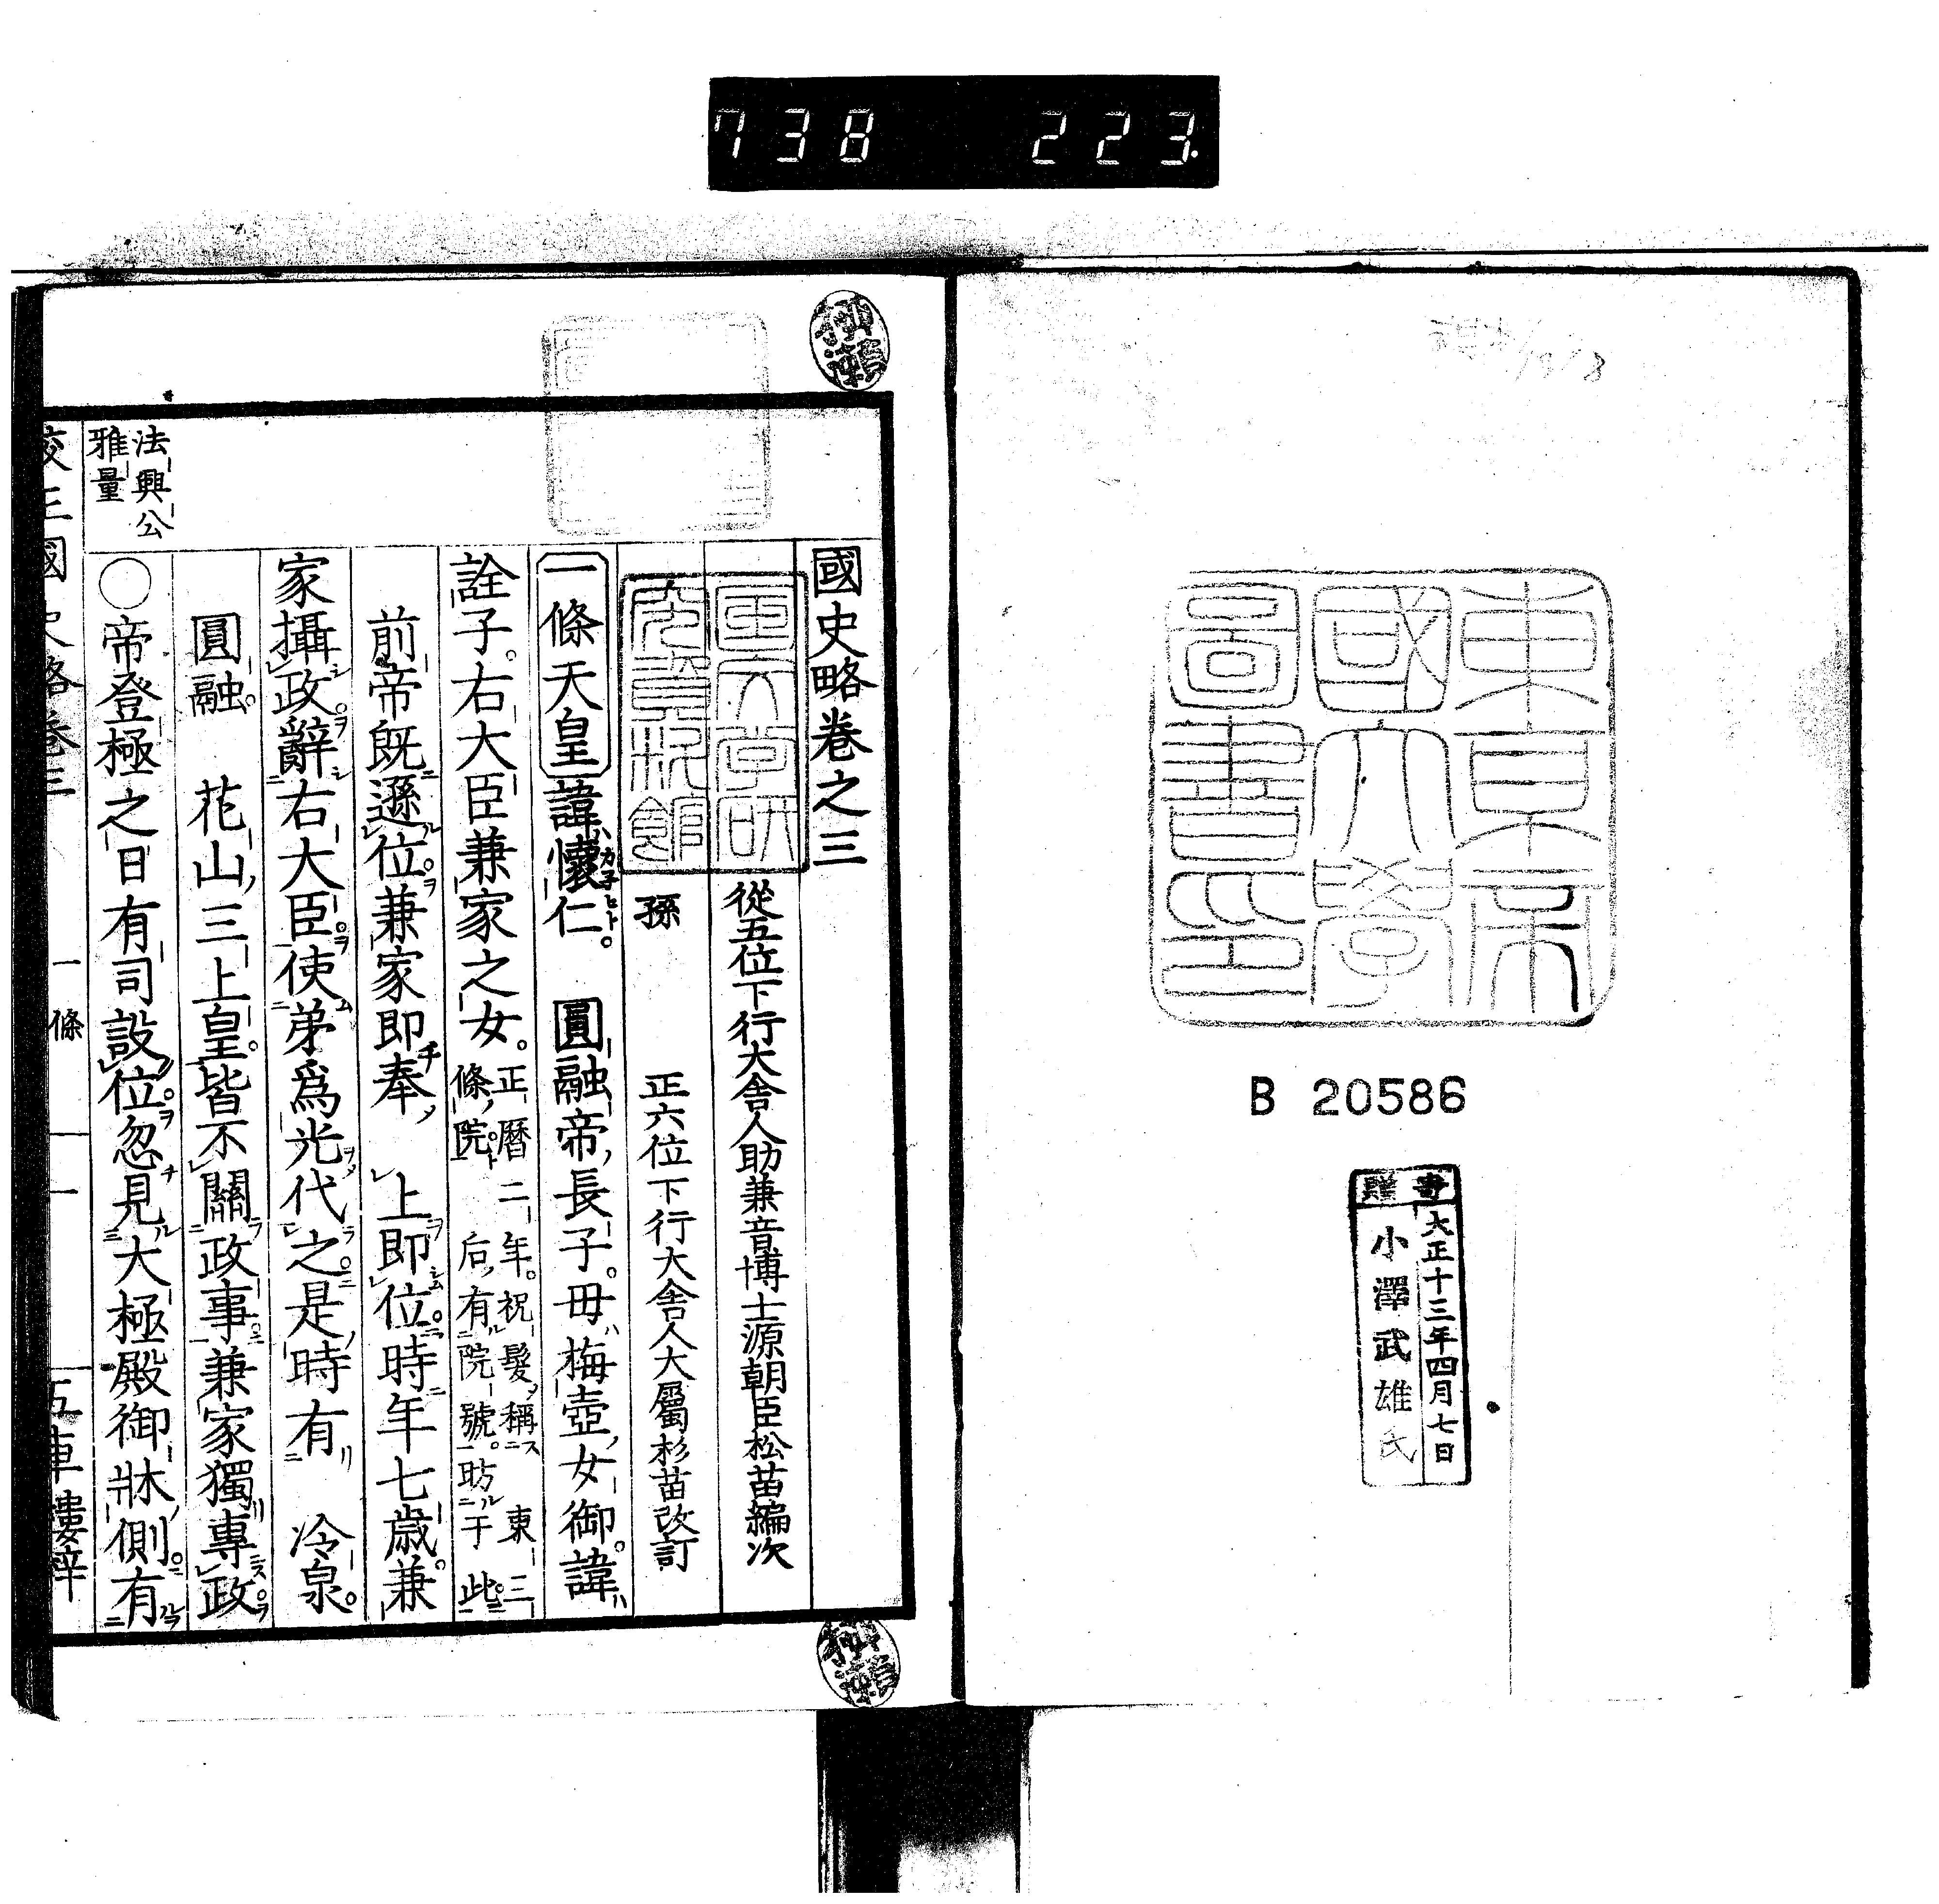 738 223
東京帝
國大學
圖書印
B 20586
寄贈
大正十三年四月七日
小澤武雄氏
柳瀬
國史略卷之三
從五位下行大舍人助兼音博士源朝臣松苗編次
孫 正六位下行大舍人大屬杉苗改訂
一條天皇諱懷仁。圓融帝長子。母梅壺女御。諱
カ子ヒト
詮子。右大臣兼家之女。正曆二年。祝髮稱東三條院。后有院號。昉于此。
前帝既遜位。兼家即奉 上即位。時年七歲。兼
家攝政。辭右大臣。使弟爲光代之。是時有 冷泉。
圓融。 花山三上皇。皆不關政事。兼家獨專政。
〇帝登極之日。有司設位。忽見大極殿御牀側。有
法興公
雅量
國史略卷三 一條 一 五車樓梓
柳瀬